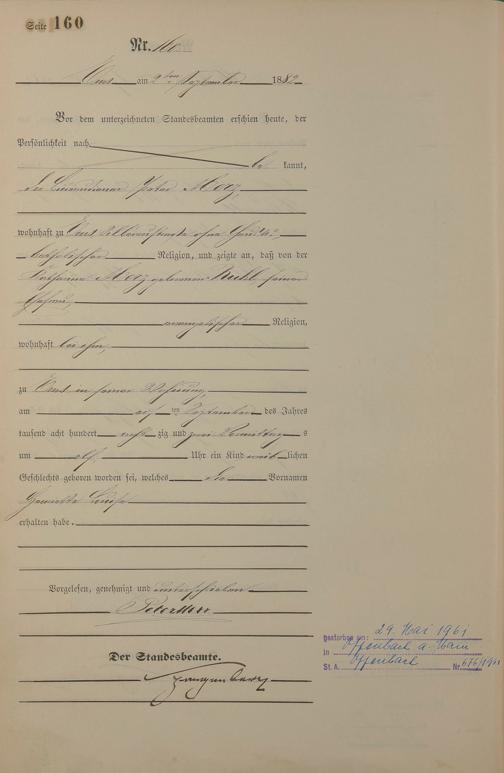 Seite 160
Nr. 160
Ems am 2ten September 1882
Vor dem unterzeichneten Standesbeamten erschien heute, der
Persönlichkeit nach
be kannt,
der Peter Merz,
wohnhaft zu Ems ohne
katholischer Religion, und zeigte an, daß von der
Katharina Merz gebornen seiner
Ehefrau,
evangelischer Religion,
wohnhaft bei ihm,
zu Ems in seiner Wohnung,
am ten September des Jahres
tausend acht hundert acht zig und zwei Vormittag s
um elf Uhr ein Kind weib lichen
Geschlechts geboren worden sei, welches die Vornamen
Henriette Louise
erhalten habe.
Vorgelesen, genehmigt und unterschrieben
Peter Merz
Der Standesbeamte.
gestorben am: 29. Mai 1961
in Offenbach a. Main
St. A. Offenbach Nr. 676/1961